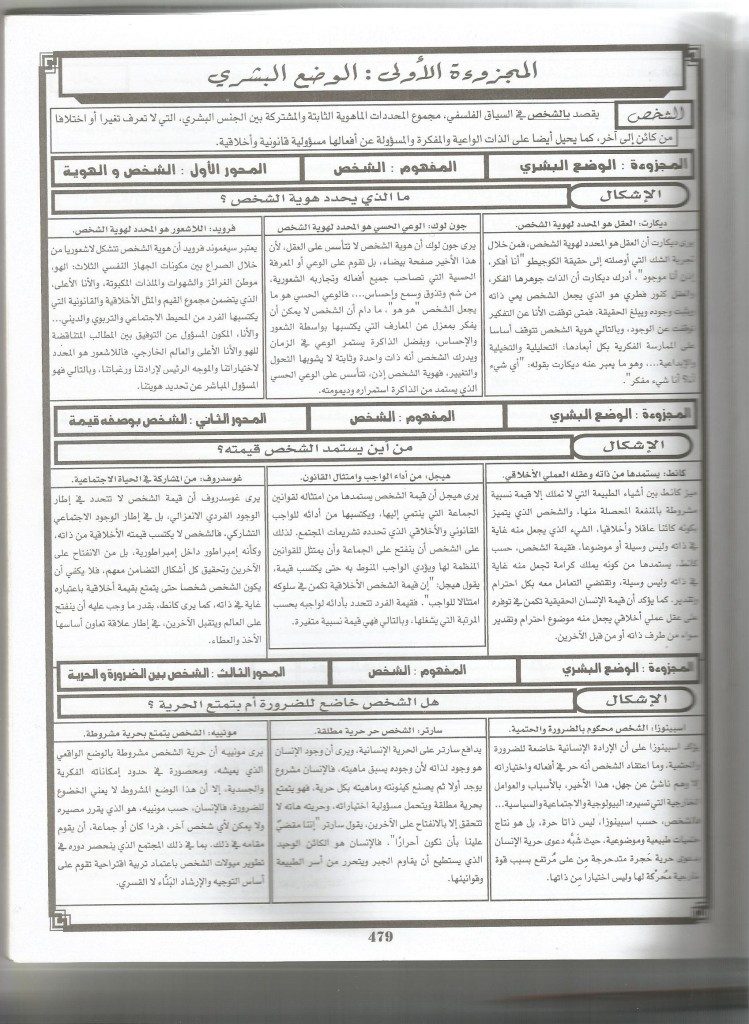 المجزوءة الأولى : الوضع البشري
الشخص
يقصد بالشخص في السياق الفلسفي، مجموع المحددات الماهوية الثابتة والمشتركة بين الجنس البشري، التي لا تعرف تغيرا أو اختلافا
من كائن إلى آخر، كما يحيل أيضا على الذات الواعية والمفكرة والمسؤولة عن أفعالها مسؤولية قانونية وأخلاقية.
المجزوءة : الوضع البشري
المفهوم : الشخص
المحور الأول : الشخص و الهوية
الإشكال
ما الذي يحدد هوية الشخص ؟
ديكارت: العقل هو المحدد لهوية الشخص.
يرى ديكارت أن العقل هو المحدد لهوية الشخص، فمن خلال
تجربة الشك التي أوصلته إلى حقيقة الكوجيطو "أنا أفكر،
إذن أنا موجود". أدرك ديكارت أن الذات جوهرها الفكر،
والعقل كنور فطري هو الذي يجعل الشخص يعي ذاته
ويثبت وجوده ويبلغ الحقيقة. فمتى توقفت الأنا عن التفكير
توقفت عن الوجود، وبالتالي هوية الشخص تتوقف أساسا
على الممارسة الفكرية بكل أبعادها: التحليلية والتخيلية
والإبداعية....، وهو ما يعبر عنه ديكارت بقوله: "أي شيء
أنا؟ أنا شيء مفكر".
جون لوك: الوعي الحسي هو المحدد لهوية الشخص.
يرى جون لوك أن هوية الشخص لا تتأسس على العقل، لأن
هذا الأخير صفحة بيضاء، بل تقوم على الوعي أو المعرفة
الحسية التي تصاحب جميع أفعاله وتجاربه الشعورية.
من شم وتذوق وسمع وإحساس....، فالوعي الحسي هو ما
يجعل الشخص "هو هو"، ما دام أن الشخص لا يمكن أن
يفكر بمعزل عن المعارف التي يكتسبها بواسطة الشعور
والإحساس، وبفضل الذاكرة يستمر الوعي في الزمان
ويدرك الشخص أنه ذات واحدة وثابتة لا يشوبها التحول
والتغيير، فهوية الشخص إذن، تتأسس على الوعي الحسي
الذي يستمد من الذاكرة استمراره وديمومته.
فرويد: اللاشعور هو المحدد لهوية الشخص.
يعتبر سيغموند فرويد أن هوية الشخص تتشكل لاشعوريا من
خلال الصراع بين مكونات الجهاز النفسي الثلاث: الهو،
موطن الغرائز والشهوات والملذات المكبوتة، والأنا الأعلى،
الذي يتضمن مجموع القيم والمثل الأخلاقية والقانونية التي
يكتسبها الفرد من المحيط الاجتماعي والتربوي والديني...
والأنا، المكون المسؤول عن التوفيق بين المطالب المتناقضة
للهو والأنا الأعلى والعالم الخارجي. فاللاشعور هو المحدد
لاختياراتنا والموجه الرئيس لإرادتنا ورغباتنا، وبالتالي فهو
المسؤول المباشر عن تحديد هويتنا.
المجزوءة : الوضع البشري
المفهوم : الشخص
المحور الثاني : الشخص بوصفه قيمة
الإشكال
من أين يستمد الشخص قيمته؟
كانط: يستمدها من ذاته وعقله العملي الأخلاقي.
ميز كانط بين أشياء الطبيعة التي لا تملك إلا قيمة نسبية
مشروطة بالمنفعة المحصلة منها، والشخص الذي يتميز
بكونه كائنا عاقلا وأخلاقيا. الشيء الذي يجعل منه غاية
في ذاته وليس وسيلة أو موضوعا. فقيمة الشخص، حسب
كانط، يستمدها من كونه يملك كرامة تجعل منه غاية
في ذاته وليس وسيلة، وتقتضي التعامل معه بكل احترام
وتقدير. كما يؤكد أن قيمة الإنسان الحقيقية تكمن في توفره
على عقل عملي أخلاقي يجعل منه موضوع احترام وتقدير
سواء من طرف ذاته أو من قبل الآخرين.
هيجل: من أداء الواجب وامتثال القانون.
يرى هيجل أن قيمة الشخص يستمدها من امتثاله لقوانين
الجماعة التي ينتمي إليها، ويكتسبها من أدائه للواجب
القانوني والأخلاقي الذي تحدده تشريعات المجتمع. لذلك
على الشخص أن ينفتح على الجماعة وأن يمتثل للقوانين
المنظمة لها ويؤدي الواجب المنوط به حتى يكتسب قيمة.
يقول هيجل: "إن قيمة الشخص الأخلاقية تكمن في سلوكه
امتثالا للواجب". فقيمة الفرد تتحدد بأدائه لواجبه بحسب
المرتبة التي يشغلها، وبالتالي فهي قيمة نسبية متغيرة.
غوسدروف: من المشاركة في الحياة الاجتماعية.
يرى غوسدروف أن قيمة الشخص لا تتحدد في إطار
الوجود الفردي الانعزالي، بل في إطار الوجود الاجتماعي
التشاركي، فالشخص لا يكتسب قيمته الأخلاقية من ذاته،
وكأنه إمبراطور داخل إمبراطورية، بل من الانفتاح على
الآخرين وتحقيق كل أشكال التضامن معهم. فلا يكفي أن
يكون الشخص شخصا حتى يتمتع بقيمة أخلاقية باعتباره
غاية في ذاته، كما يرى كانط، بقدر ما وجب عليه أن ينفتح
على العالم ويتقبل الآخرين، في إطار علاقة تعاون أساسها
الأخذ والعطاء.
المجزوءة : الوضع البشري
المفهوم : الشخص
المحور الثالث : الشخص بين الضرورة و الحرية
الإشكال
هل الشخص خاضع للضرورة أم يتمتع الحرية ؟
اسبينوزا: الشخص محكوم بالضرورة والحتمية.
يؤكد اسبينوزا على أن الإرادة الإنسانية خاضعة للضرورة
والحتمية، وما اعتقاد الشخص أنه حر في أفعاله واختياراته
إلا وهم ناشئ عن جهل، هذا الأخير، بالأسباب والعوامل
الخارجية التي تسيره: البيولوجية والاجتماعية والسياسية...
فالشخص، حسب اسبينوزا، ليس ذاتا حرة، بل هو نتاج
حتميات طبيعية وموضوعية، حيث شُبّه دعوى حرية الإنسان
بدعوى حرية حَجرة متدحرجة من على مُرتفع بسبب قوة
خارجية مُحرّكة لها وليس اختيارا مِن ذاتها.
سارتر: الشخص حر حرية مطلقة.
يدافع سارتر على الحرية الإنسانية، ويرى أن وجود الإنسان
هو وجود لذاته لأن وجوده يسبق ماهيته. فالإنسان مشروع
يوجد أولا ثم يصنع كينونته وماهيته بكل حرية. فهو يتمتع
بحرية مطلقة ويتحمل مسؤولية اختياراته، وحريته هاته لا
تتحقق إلا بالانفتاح على الآخرين، يقول سارتر "إننا مقضيٌّ
علينا بأن نكون أحرارًا". فالإنسان هو الكائن الوحيد
الذي يستطيع أن يقاوم الجبر ويتحرر من أسر الطبيعة
وقوانينها.
مونييه: الشخص يتمتع بحرية مشروطة.
يرى مونييه أن حرية الشخص مشروطة بالوضع الواقعي
الذي يعيشه، ومحصورة في حدود إمكاناته الفكرية
والجسدية، إلا أن هذا الوضع المشروط لا يعني الخضوع
للضرورة، فالإنسان، حسب مونييه، هو الذي يقرر مصيره
ولا يمكن لأي شخص آخر، فردا كان أو جماعة، أن يقوم
مقامه في ذلك. بما في ذلك المجتمع الذي ينحصر دوره في
تطوير ميولات الشخص باعتماد تربية اقتراحية تقوم على
أساس التوجيه والإرشاد البَنّاء لا القسري.
479